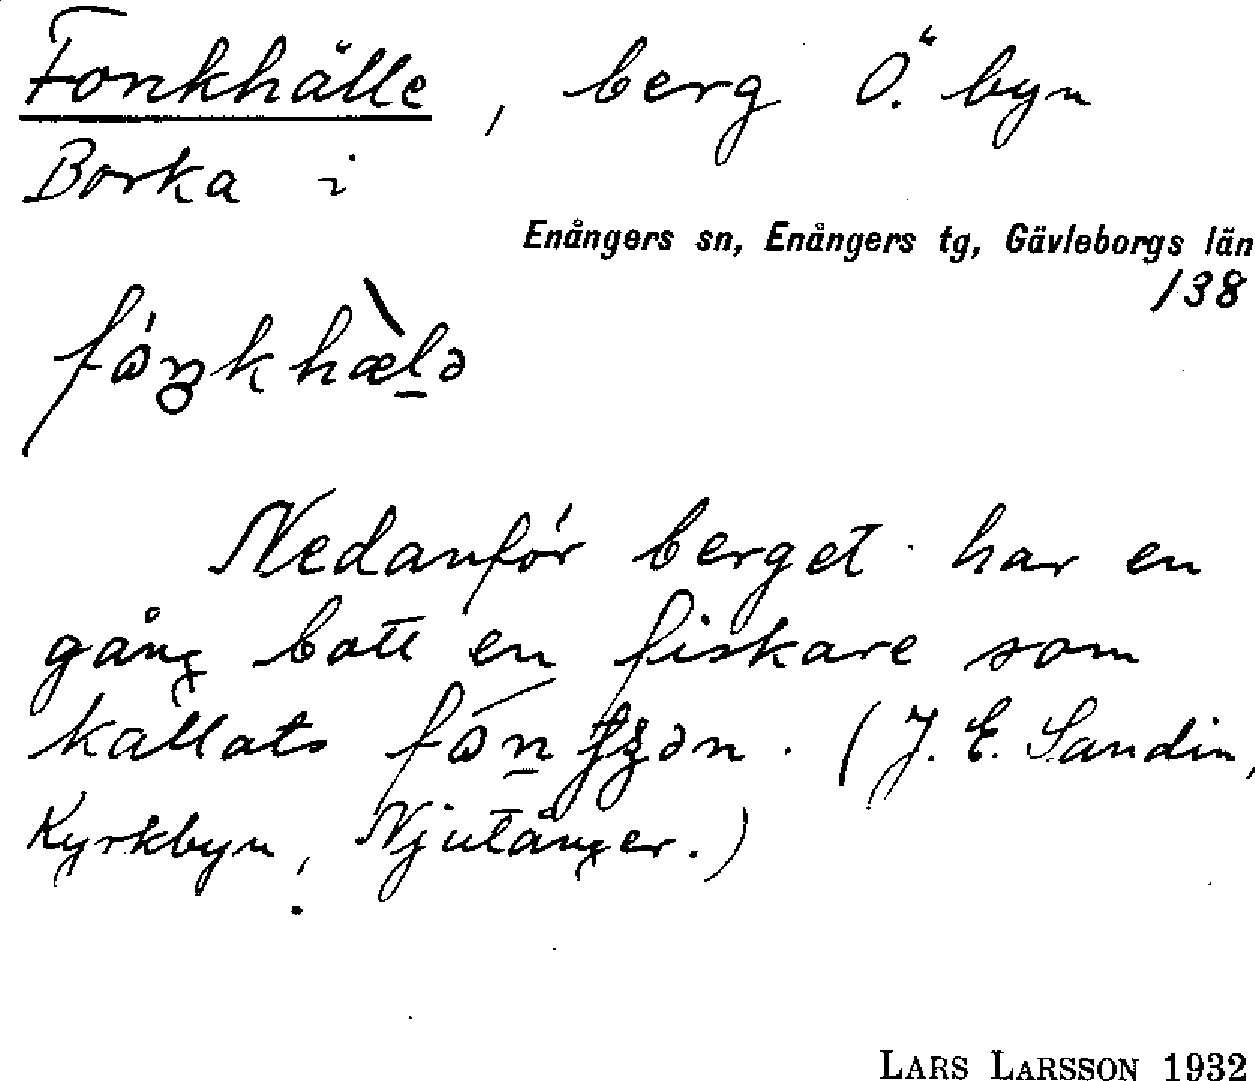 Fonkhälle, berg Ö. byn
Borka i
Enångers sn, Enångers tg, Gävleborgs län
138
Nedanför berget har en
gång bott en fiskare som
kallats . (J. E. Sandin,
Kyrkbyn, Njutånger.)
LARS LARSSON 1932